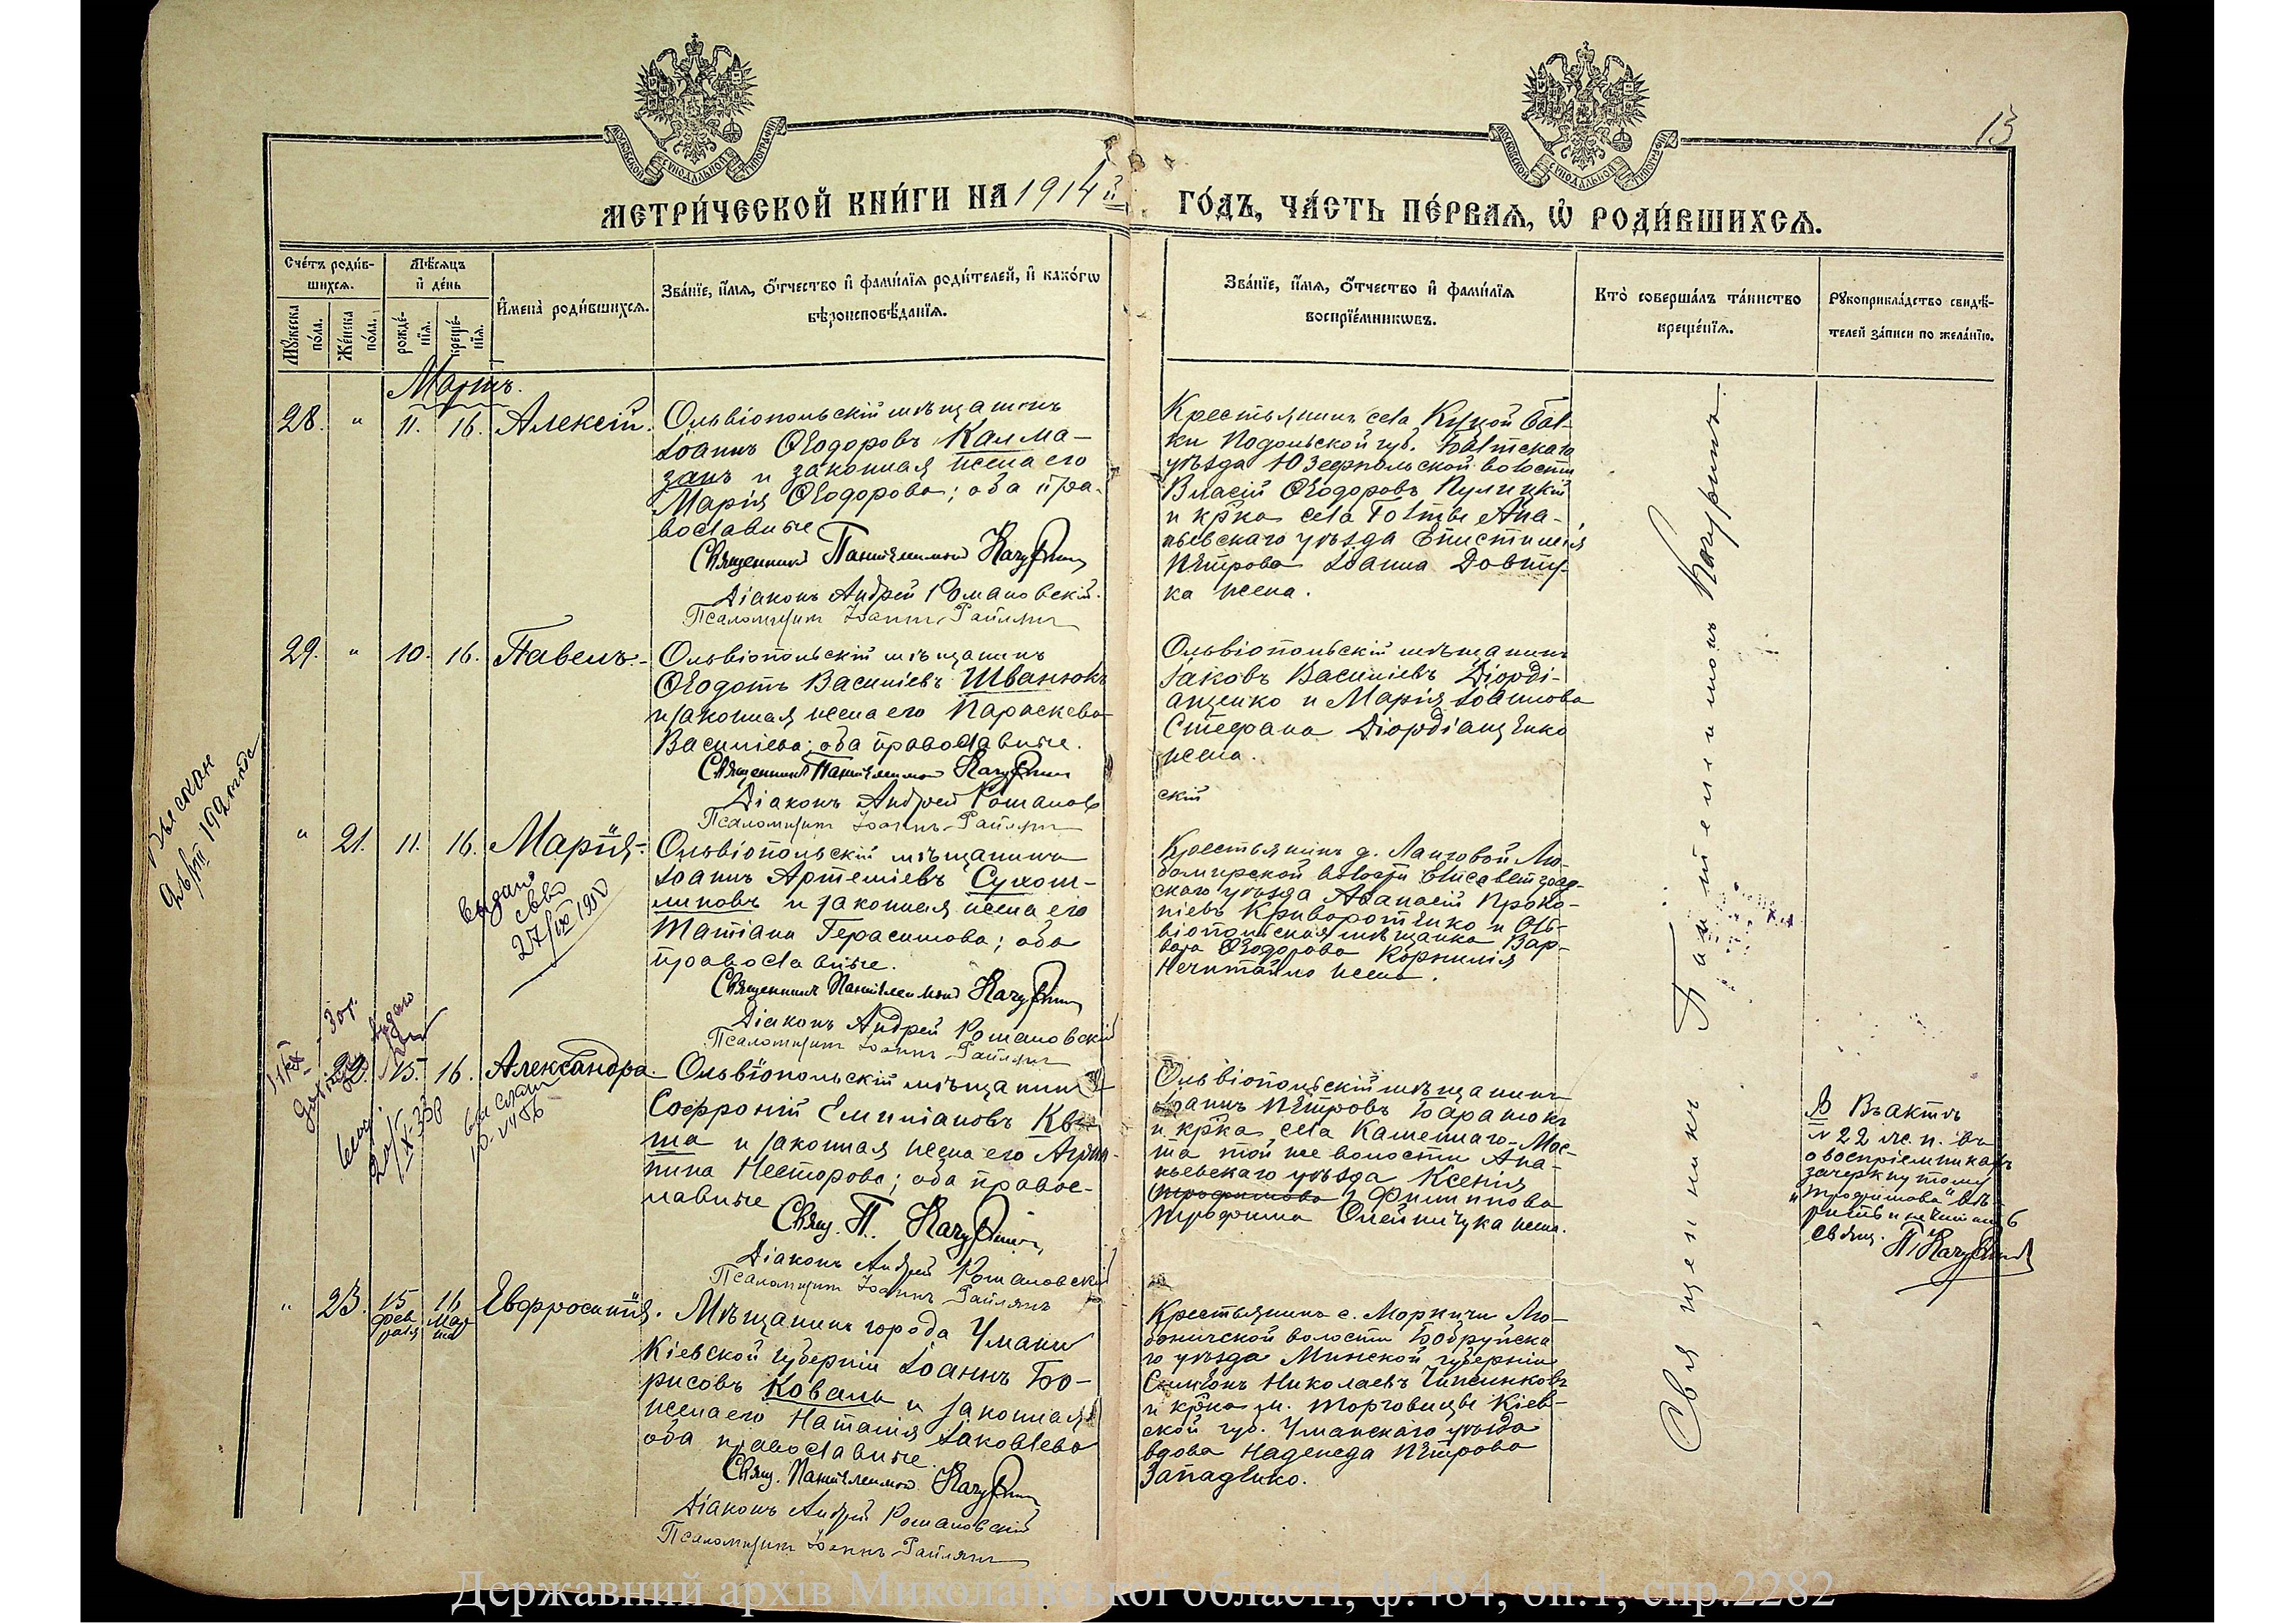 13
МОСКОВСКОЙ СѴНОДАЛЬНОЙ ТИПОГРАФІИ
МОСКОВСКОЙ СѴНОДАЛЬНОЙ ТИПОГРАФІИ
МЕТРИ́ЧЕСКОЙ КНИ́ГИ НА 1914й ГО́ДЪ, ЧА́СТЬ ПЕ́РВАѦ, Ѡ҆ РОДИ́ВШИХСѦ.
Сче́тъ роди́в-
шихсѧ.
Мꙋ́жеска
по́ла.
Же́нска
по́ла.
Мѣ́сѧцъ
и҆ де́нь
рожде́-
нїѧ.
креще́-
нїѧ.
И҆мена̀ роди́вшихсѧ.
Зва́нїе, и҆́мѧ, ѻ҆́тчество и҆ фами́лїѧ роди́телей, и҆ како́гѡ
вѣроисповѣ́данїѧ.
Зва́нїе, и҆́мѧ, ѻ҆́тчество и҆ фами́лїѧ
воспрїе́мникѡвъ.
Кто̀ соверша́лъ та́инство
креще́нїѧ.
Рꙋкоприкла́дство свидѣ́-
телей за́писи по жела́нїю.
Мартъ.
28. " 11. 16. Алексій.
Ольвіопольскій мѣщанинъ
Іоаннъ Ѳеодоровъ Калма-
занъ и законная жена его
Марія Ѳеодорова; оба пра-
вославные
Священникъ Пантелеимонъ
Діаконъ Андрей Романовскій.
Псаломщикъ Іоаннъ
Крестьянинъ села Куцой Бал-
ки Подольской губ. Балтскаго
уѣзда Юзефпольской волости
Власій Ѳеодоровъ Пулицкій
и кр҃ка села Голты Ана-
ньевскаго уѣзда Епистимія
Петрова Іоанна Довгу-
ка жена.
29. " 10. 16. Павелъ.
Ольвіопольскій мѣщанинъ
Ѳеодотъ Василіевъ Шванюкъ
и законная жена его Параскева
Василіева; оба православные.
Священникъ Пантелеимонъ
Діаконъ Андрей Романов
скій
Псаломщикъ Іоаннъ
Ольвіопольскій мѣщанинъ
Іаковъ Василіевъ Діорді-
ащенко и Марія Іоаннова
Стефана Діордіащенко
жена.
" 21. 11. 16. Марія.
Ольвіопольскій мѣщанинъ
Іоаннъ Артеміевъ Сухом-
линовъ и законная жена его
Татіана Герасимова; оба
православные.
Священникъ Пантелеимонъ
Діаконъ Андрей Романовскій
Псаломщикъ Іоаннъ
Крестьянинъ д. Лановой Лю-
домирской волости Елисаветград-
скаго уѣзда Аѳанасій Проко-
піевъ Криворотенко и Оль-
віопольская мѣщанка Вар-
вара Ѳеодорова Корнилія
Нечитайло жена.
выдано
св-во
27/IX 1950
22. 15. 16. Александра.
Ольвіопольскій мѣщанинъ
Софроній Емиліановъ Кв
та и законная жена его Агрип-
пина Несторова; оба правос-
лавные
Свящ. П.
Діаконъ Андрей Романовскій
Псаломщикъ Іоаннъ
Ольвіопольскій мѣщанинъ
Іоаннъ Петровъ Баранюкъ
и кр҃ка села Каменнаго-Мос-
та той же волости Ана-
ньевскаго уѣзда Ксенія
Трофимова Филиппова
Трофима Олейничука жена.
Въ актѣ
№ 22 ж. п. въ
о воспріемникахъ
зачеркнутому
"Трофимова" вѣ-
рить и не читать
свящ. П.
" 23. 15 фев раля 16 Мар та Евфросинія.
Мѣщанинъ города Умани
Кіевской губерніи Іоаннъ Бо-
рисовъ Коваль и законная
жена его Наталія Іаковлева
оба православные.
Свящ. Пантелеимонъ
Діаконъ Андрей Романовскій
Псаломщикъ Іоаннъ
Крестьянинъ с. Моркичи Лю-
боничской волости Бобруйска
го уѣзда Минской губерніи
Симеонъ Николаевъ
и кр҃ка м. Торговицы Кіев-
ской губ. Уманскаго уѣзда
вдова Надежда Петрова
Западенко.
Священникъ Пантелеимонъ
Державний архів Миколаївської області, ф.484, оп.1, спр.2282